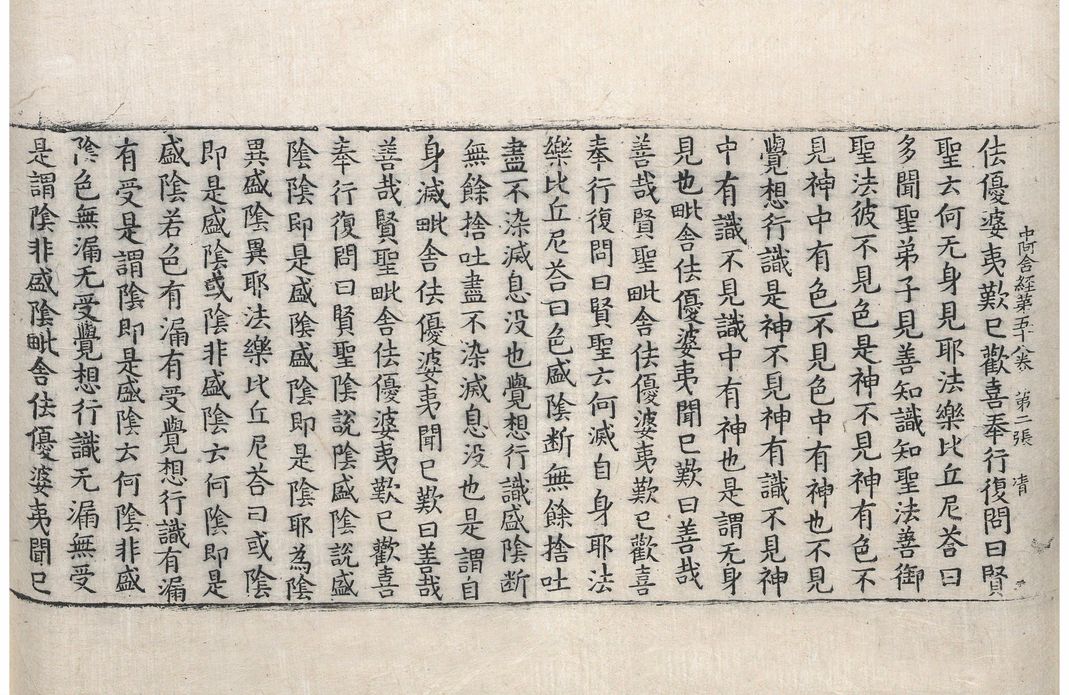 佉優婆夷歎已歡喜奉行復問曰賢
中阿含經第五十八卷 第二張 清
聖云何无身見耶法樂比丘尼荅曰
多聞聖弟子見善知識知聖法善御
聖法彼不見色是神不見神有色不
見神中有色不見色中有神也不見
覺想行識是神不見神有識不見神
中有識不見識中有神也是謂无身
見也毗舍佉優婆夷聞已歎曰善哉
善哉賢聖毗舍佉優婆夷歎已歡喜
奉行復問曰賢聖云何滅自身耶法
樂比丘尼荅曰色盛陰断無餘捨吐
盡不染滅息没也覺想行識盛陰断
無餘捨吐盡不染滅息没也是謂自
身滅毗舍佉優婆夷聞已歎曰善哉
善哉賢聖毗舍佉優婆夷歎已歡喜
奉行復問曰賢聖陰說陰盛陰說盛
陰陰即是盛陰盛陰即是陰耶為陰
異盛陰異耶法樂比丘尼荅曰或陰
即是盛陰或陰非盛陰云何陰即是
盛陰若色有漏有受覺想行識有漏
有受是謂陰即是盛陰云何陰非盛
陰色無漏无受覺想行識无漏無受
是謂陰非盛陰毗舍佉優婆夷聞已